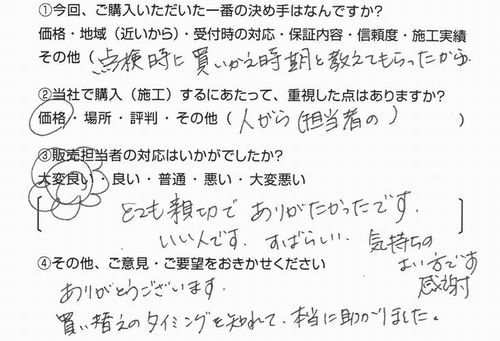 ①今回、ご購入いただいた一番の決め手はなんですか?
価格・地域（近いから）・受付時の対応・保証内容・信頼度・施工実績
その他（点検時に買いかえ時期と教えてもらったから）
②当社で購入（施工）するにあたって、重視した点はありますか?
価格・場所・評判・その他（人がら（担当者の））
③販売担当者の対応はいかがでしたか?
大変良い・良い・普通・悪い・大変悪い
とても親切でありがたかったです.
いい人です. すばらしい. 気持ちの
よい方です
感謝
④その他、ご意見・ご要望をおきかせください
ありがとうございます.
買い替えのタイミングを知れて、本当に助かりました。